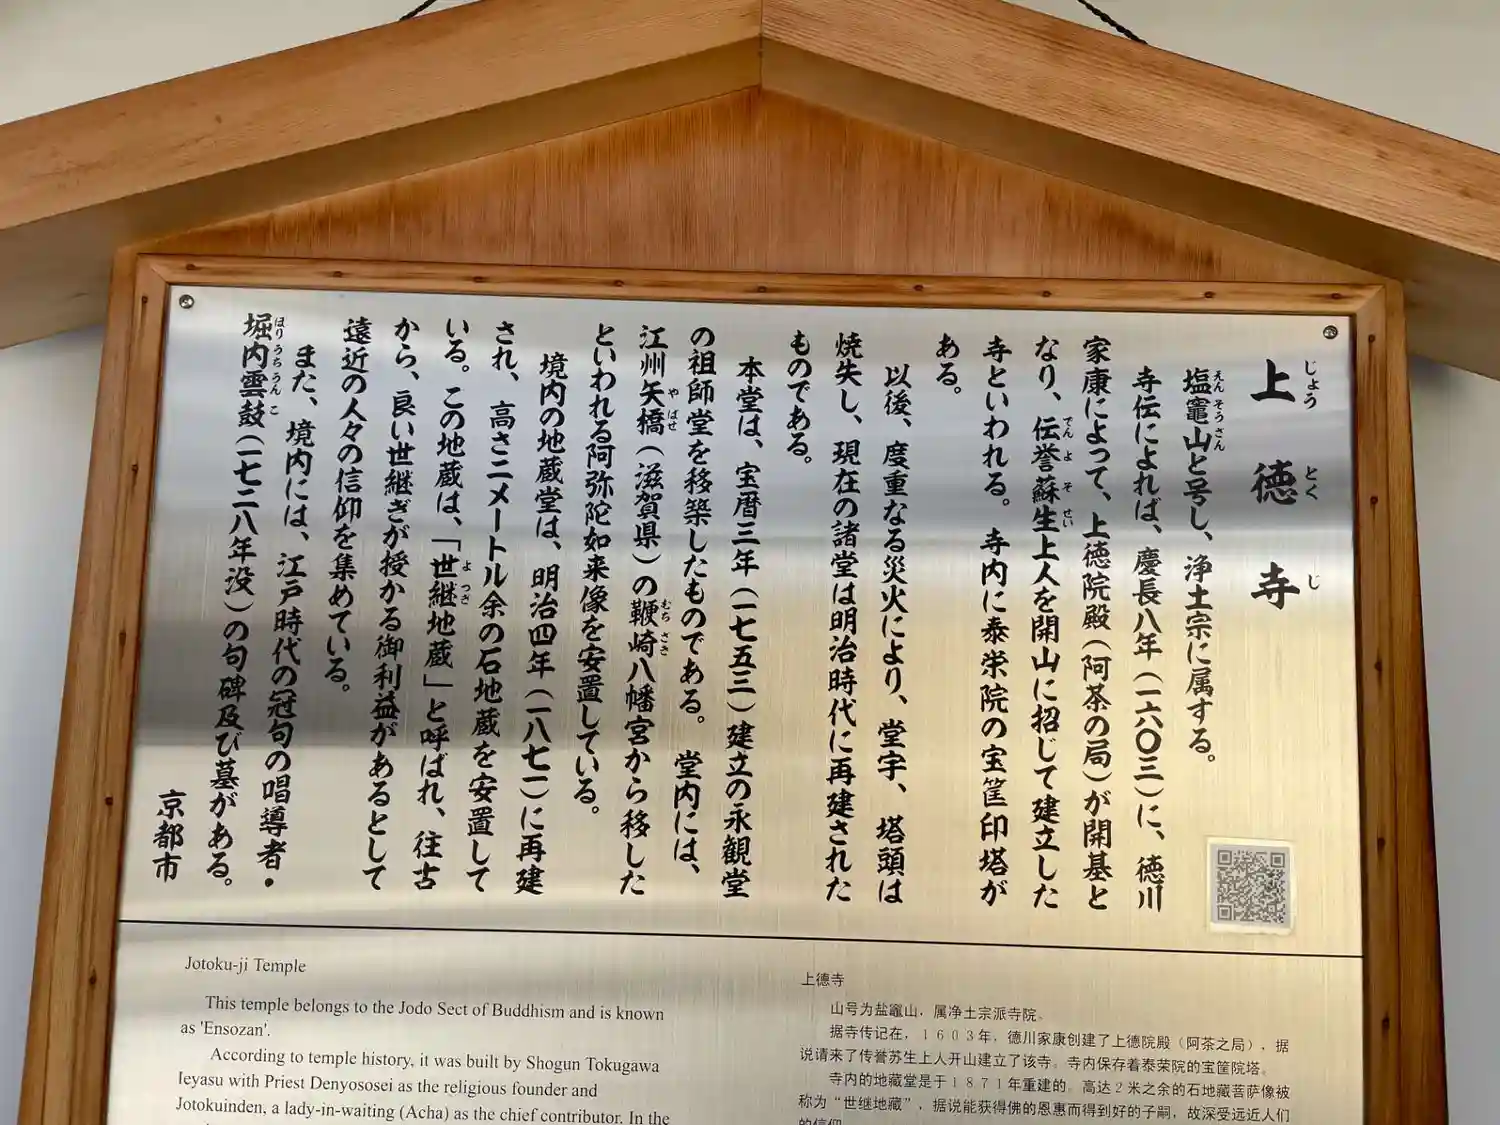 上徳寺
じょう とく じ
塩竈山と号し、浄土宗に属する。
えんそうさん
寺伝によれば、慶長八年(一六〇三)に、徳川
家康によって、上徳院殿(阿茶の局)が開基と
なり、伝誉蘇生上人を開山に招じて建立した
でんよそせい
寺といわれる。寺内に泰栄院の宝筐印塔が
ある。
以後、度重なる災火により、堂宇、塔頭は
焼失し、現在の諸堂は明治時代に再建された
ものである。
本堂は、宝暦三年(一七五三)建立の永観堂
の祖師堂を移築したものである。堂内には、
江州矢橋(滋賀県)の鞭崎八幡宮から移した
やばせ むちざき
といわれる阿弥陀如来像を安置している。
境内の地蔵堂は、明治四年(一八七一)に再建
され、高さ二メートル余の石地蔵を安置して
いる。この地蔵は、「世継地蔵」と呼ばれ、往古
よつぎ
から、良い世継ぎが授かる御利益があるとして
遠近の人々の信仰を集めている。
また、境内には、江戸時代の冠句の唱導者・
堀内雲鼓(一七二八年没)の句碑及び墓がある。
ほりうちうんこ
京都市
Jotoku-ji Temple
This temple belongs to the Jodo Sect of Buddhism and is known
as 'Ensozan'.
According to temple history, it was built by Shogun Tokugawa
Ieyasu with Priest Denyososei as the religious founder and
Jotokuinden, a lady-in-waiting (Acha) as the chief contributor. In the
上德寺
山号为盐竈山，属净土宗派寺院。
据寺传记在，1603年，德川家康创建了上德院殿（阿茶之局），据
说请来了传誉苏生上人开山建立了该寺。寺内保存着泰荣院的宝筐院塔。
寺内的地藏堂是于1871年重建的。高达2米之余的石地藏菩萨像被
称为“世继地藏”，据说能获得佛的恩惠而得到好的子嗣，故深受远近人们
的信仰